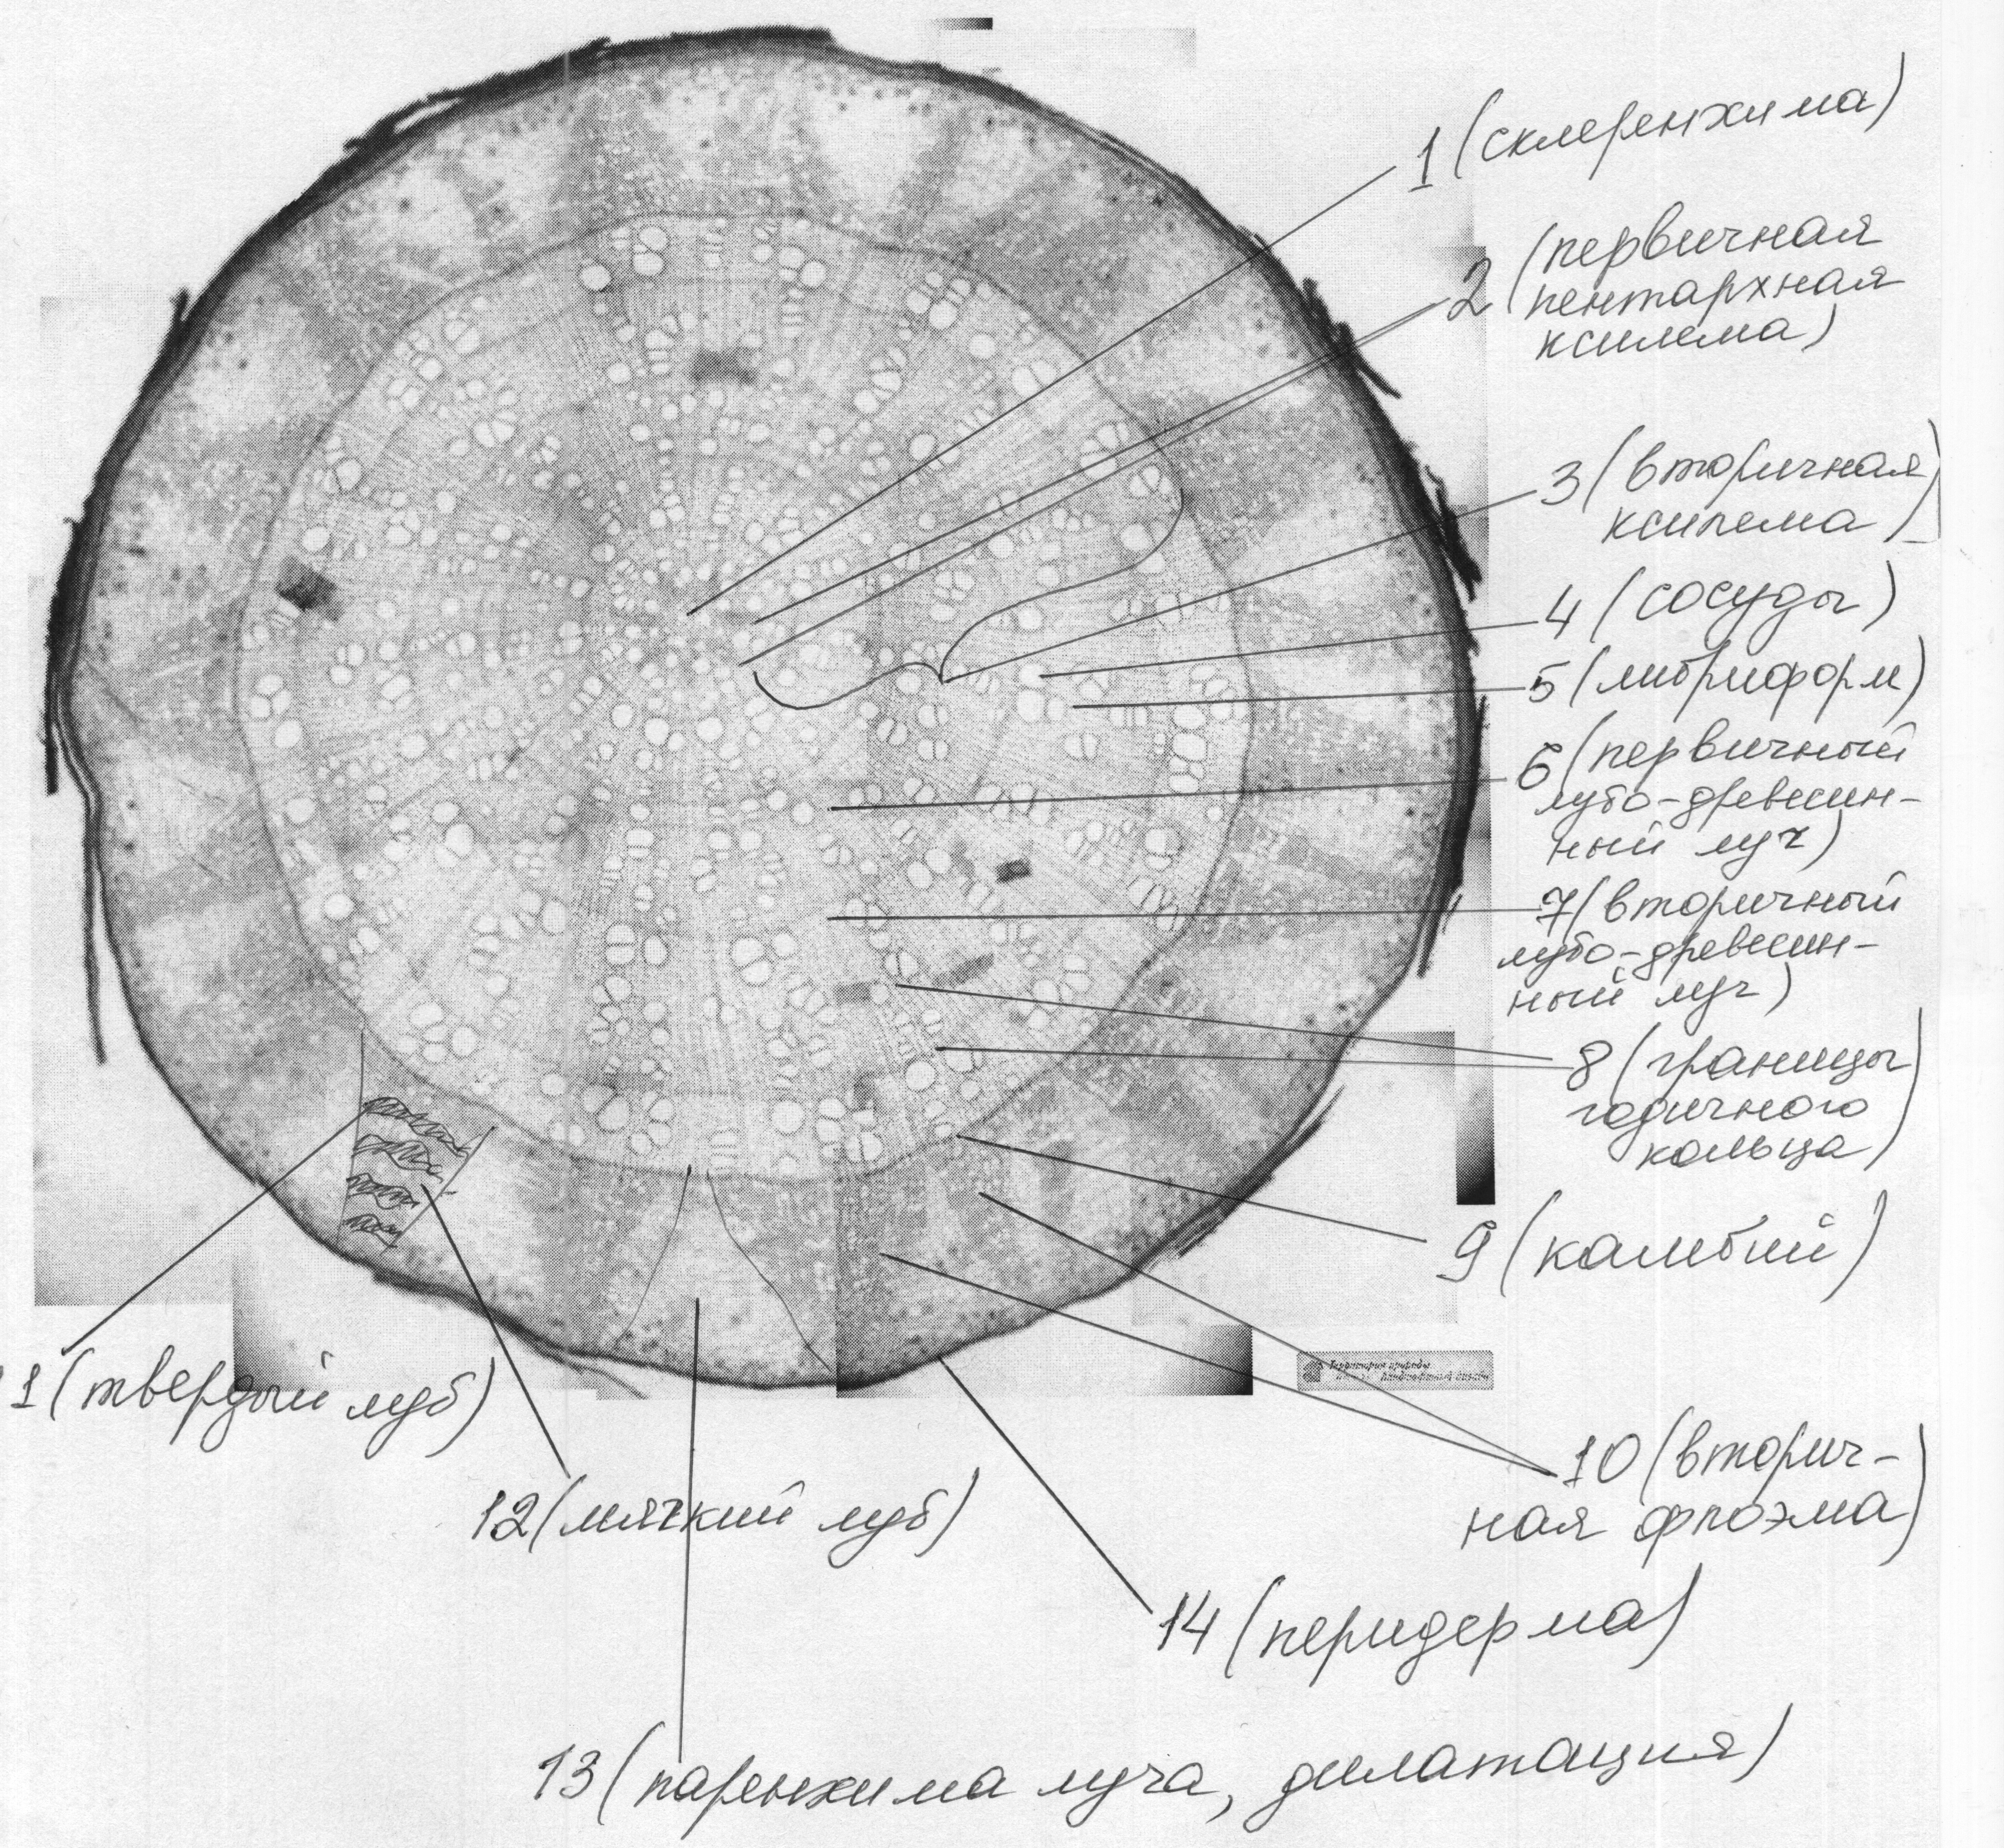 1 (склеренхима)
2 (первичная
пентархная
ксилема)
3 (вторичная
ксилема)
4 (сосуды)
5 (либриформ)
6 (первичный
лубо-древесин-
ный луч)
7 (вторичный
лубо-древесин-
ный луч)
8 (границы
годичного
кольца)
9 (камбий)
Территория природы
10 (вторич-
ная флоэма)
11 (твердый луб)
12 (мягкий луб)
14 (перидерма)
13 (паренхима луча, дилатация)